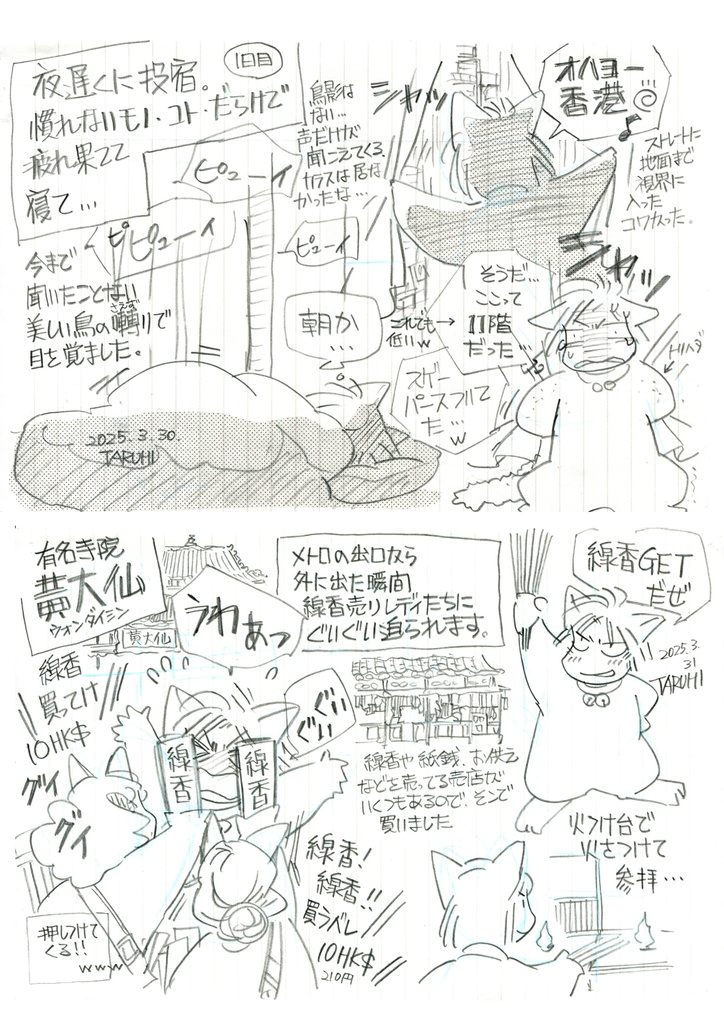 1日目
夜遅くに投宿。
慣れないモノ・コト・だらけで
疲れ果てて
寝て…
ピューイ
ピピューイ
ピューイ
鳥影は
ない…
声だけが
聞こえてくる
カラスは居な
かったな…
今まで
聞いたことない
美しい鳥の囀りで
さえず
目を覚ました。
朝か
…
2025.3.30.
TARUHI
シャッ
オハヨー
香港
♪
ストレートに
地面まで
視界に
入った
コワかった。
シャッ
そうだ…
ここって
11階
だった…
これでも→
低いw
スゲー
パースフルて
た…
w
有名寺院
黄大仙
ウォンダイシン
黄大仙
うわ
あっ
メトロの出口なら
外に出た瞬間
線香売りレディたちに
ぐいぐい迫られます。
線香
買ってけ
10HK$
グイ
グイ
ぐい
ぐい
線香
線香
線香や紙銭、お供え
などを売ってる売店が
いくつもあるので、そこで
買いました
線香!
線香!!
買うベレ
10HK$
210円
押しつけて
くる!!
www
線香GET
だぜ
2025.3.
31
TARUHI
火つけ台で
火をつけて
参拝…